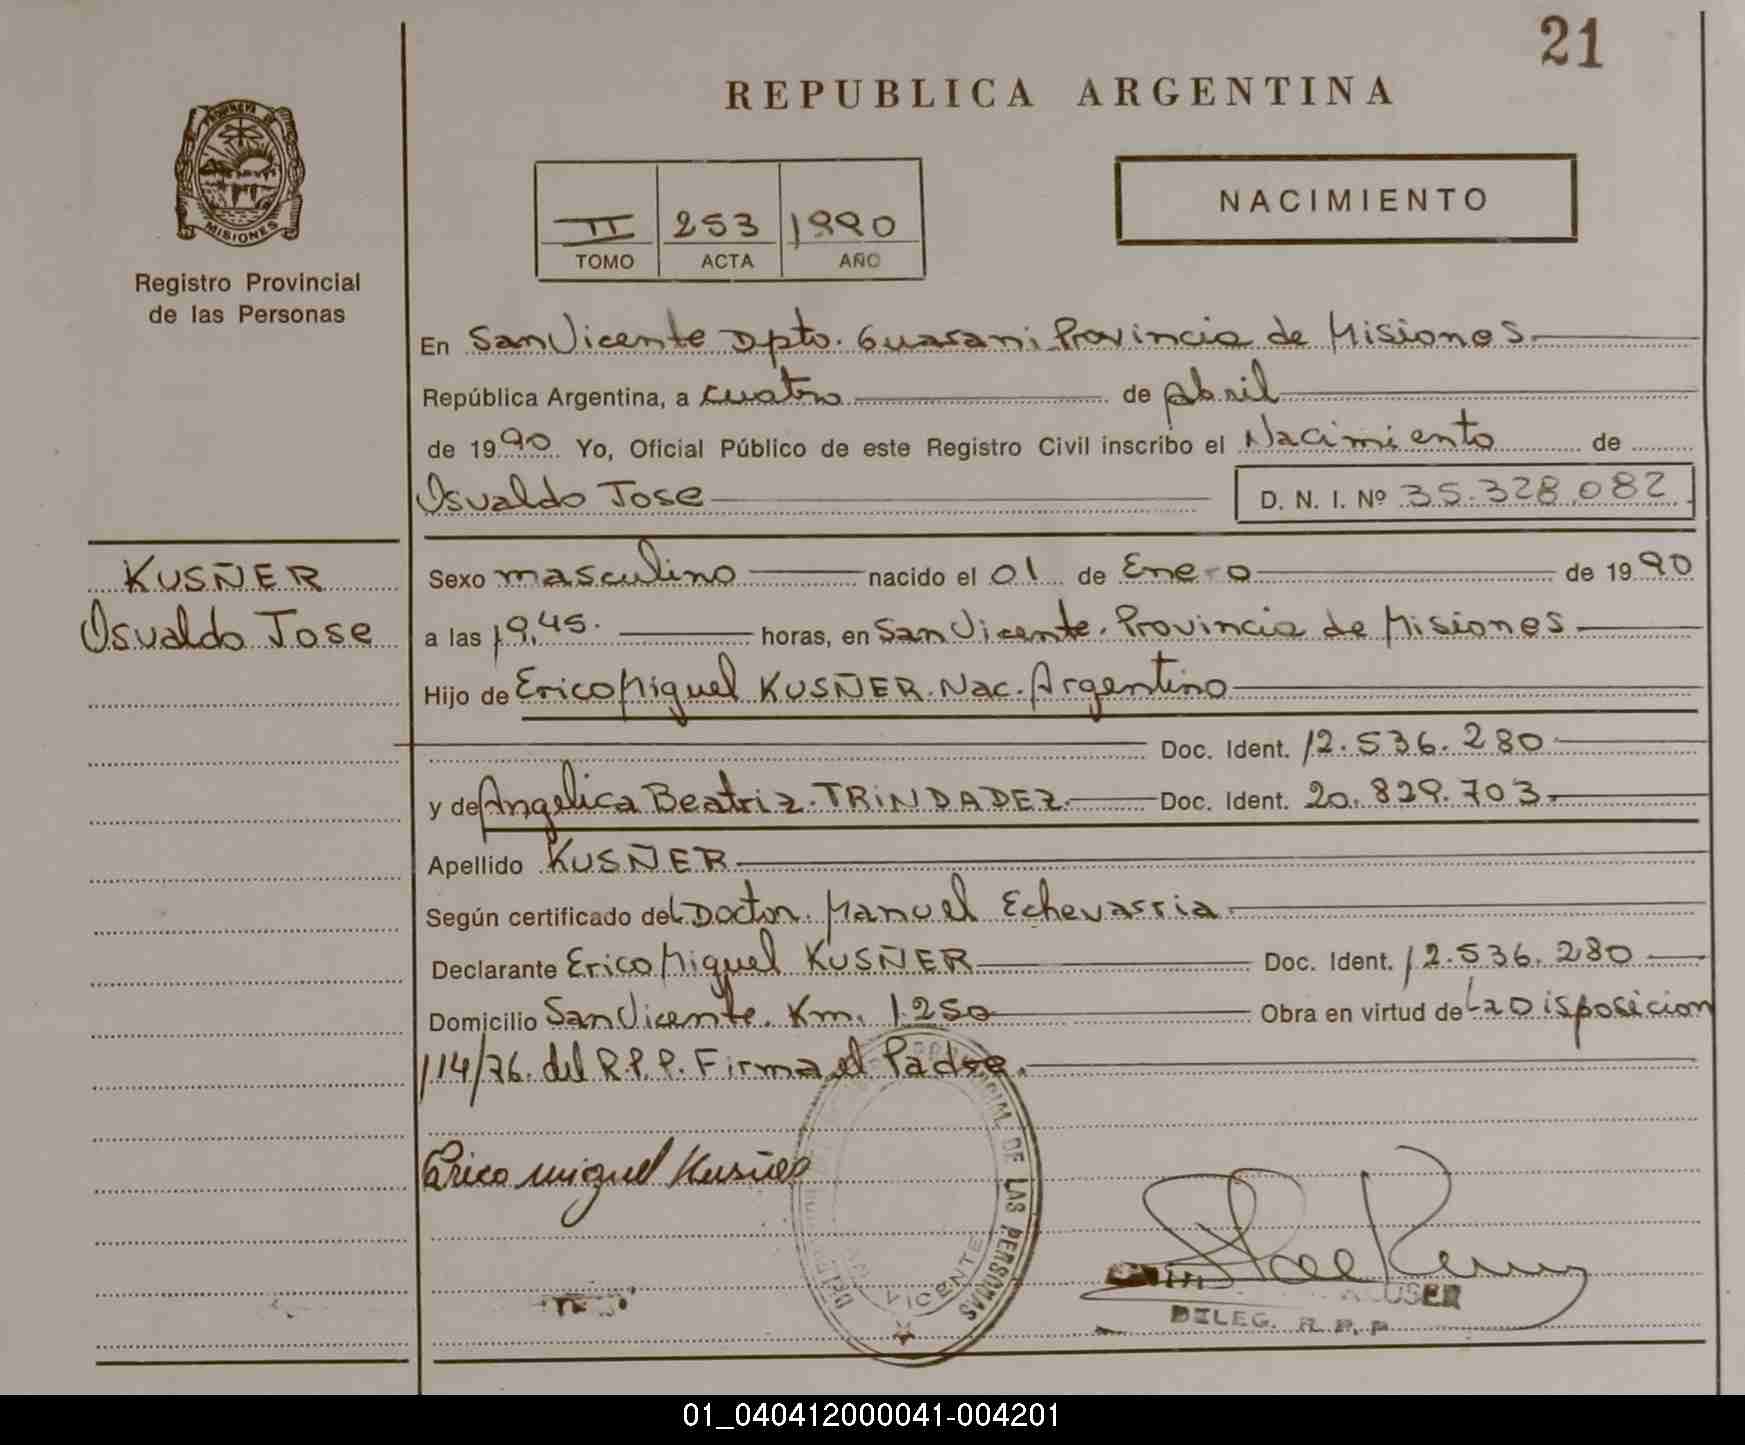 21
REPUBLICA ARGENTINA
PROVINCIA DE
MISIONES
Registro Provincial
de las Personas
II 253 1990
TOMO ACTA AÑO
NACIMIENTO
En San Vicente Dpto. Guarani Provincia de Misiones
República Argentina, a cuatro de abril
de 1990 Yo, Oficial Público de este Registro Civil inscribo el Nacimiento de
Osvaldo Jose D. N. I. Nº 35.328.082
KUSÑER
Osvaldo Jose
Sexo masculino nacido el 01 de Enero de 1990
a las 19,45. horas, en San Vicente. Provincia de Misiones
Hijo de Erico Miguel KUSÑER. Nac. Argentino
Doc. Ident. 12.536.280
y de Angelica Beatriz. TRINDADEZ. Doc. Ident. 20.829.703.
Apellido KUSÑER
Según certificado del Doctor. Manuel Echevarria.
Declarante Erico Miguel KUSÑER Doc. Ident. 12.536.280
Domicilio San Vicente. Km. 1250 Obra en virtud de La Disposicion
114/76. del R.P.P. Firma el Padre.
Erico Miguel Kusñer
DE LAS PERSONAS
VICENTE
DELEG. R.P.P
01_040412000041-004201